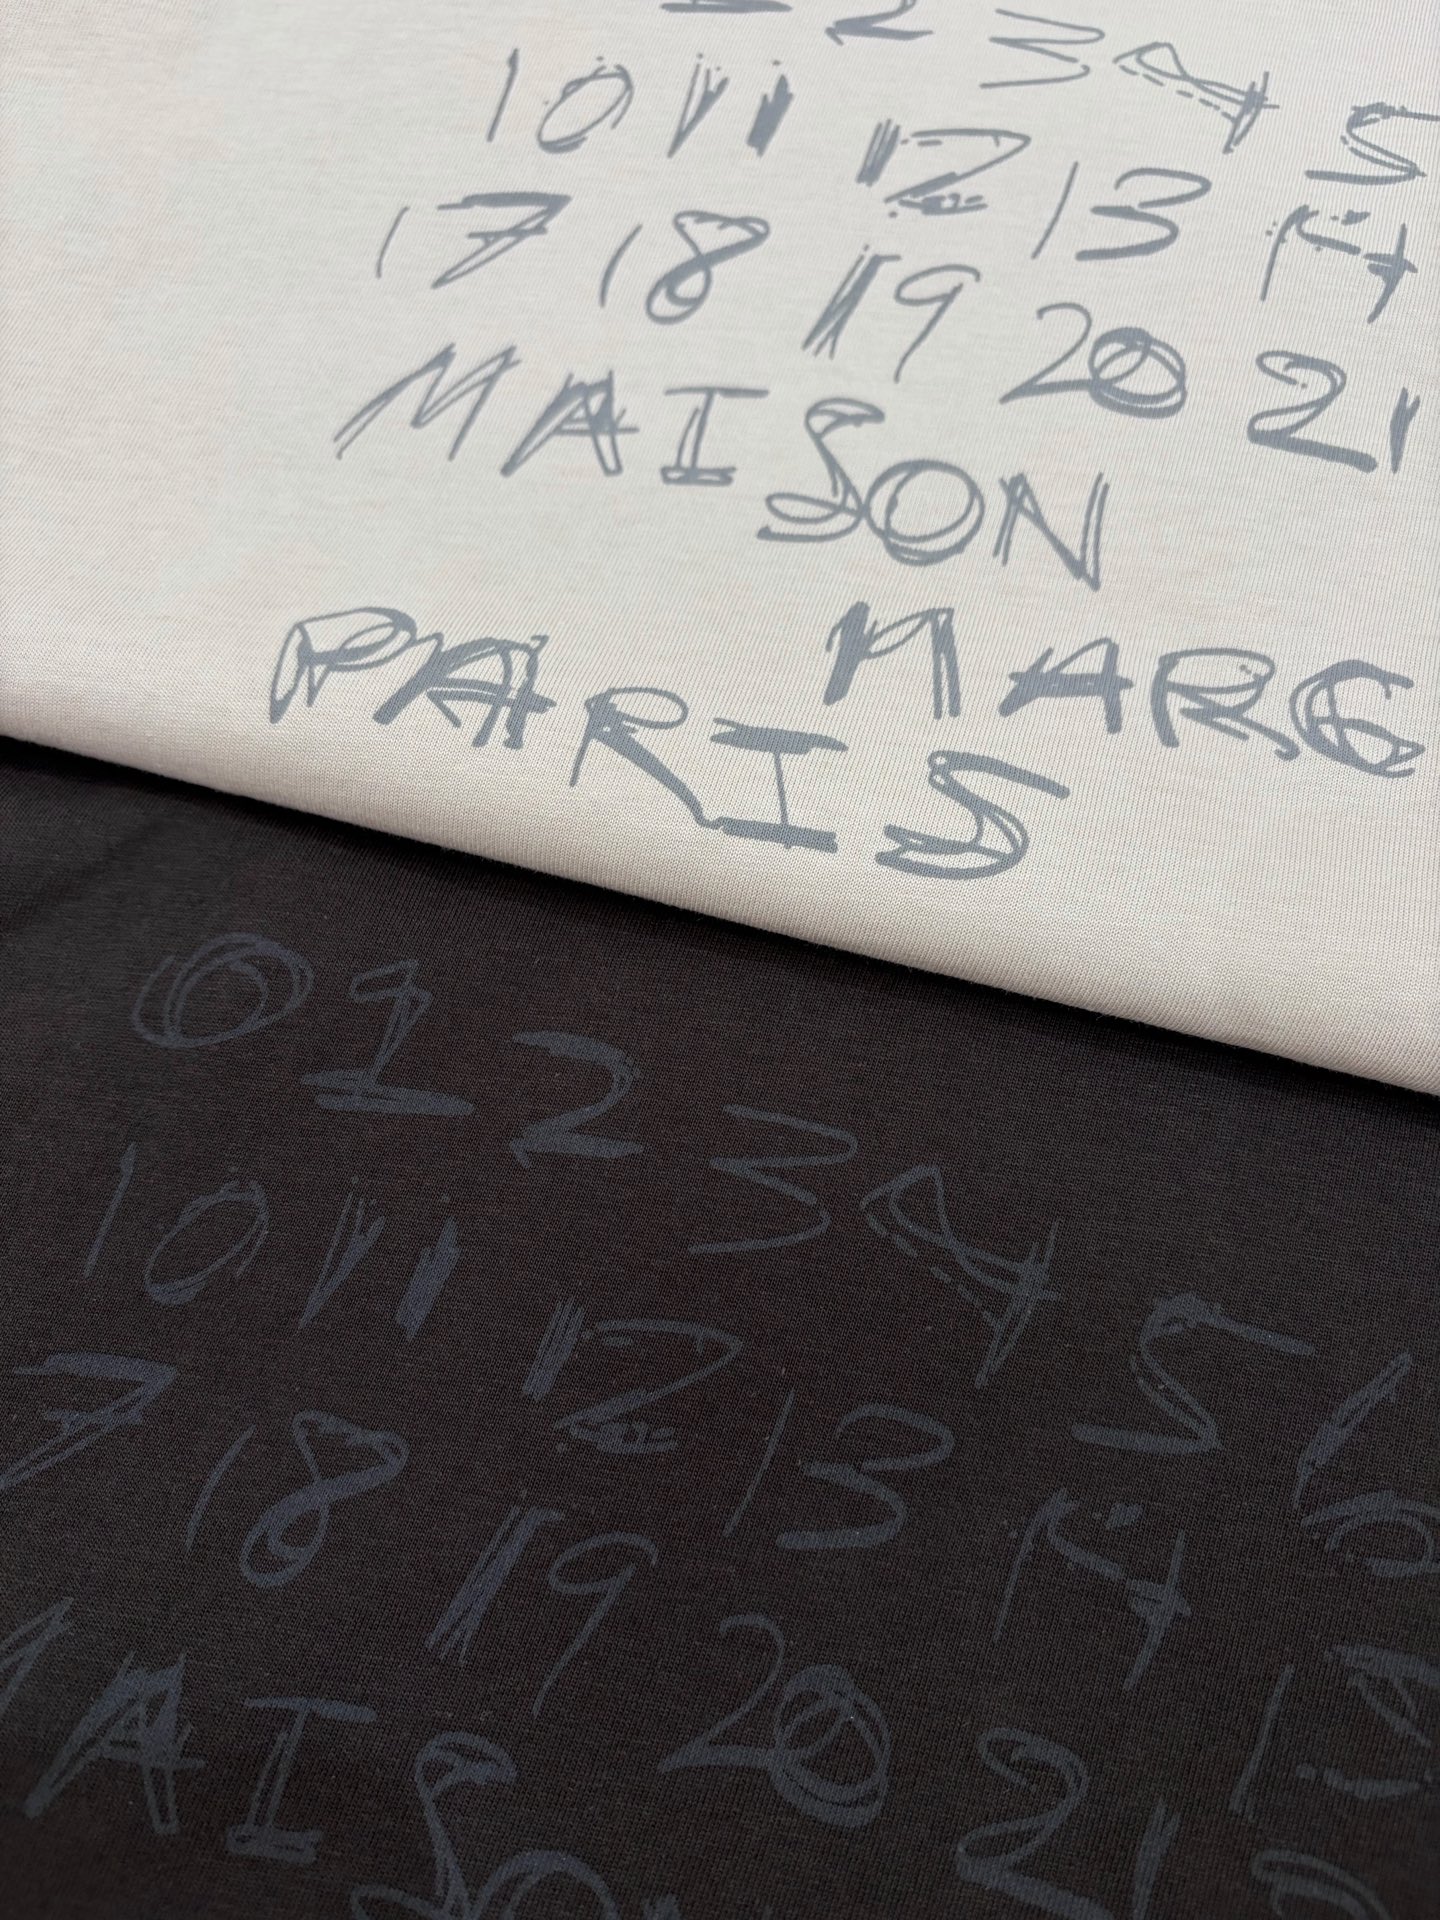 2 3 4 5
10 11 12 13 14
17 18 19 20 21
MAISON
MARG
PARIS
0 1 2 3 4 5 6
10 11 12 13 14
7 18 19 20 21
MAISO